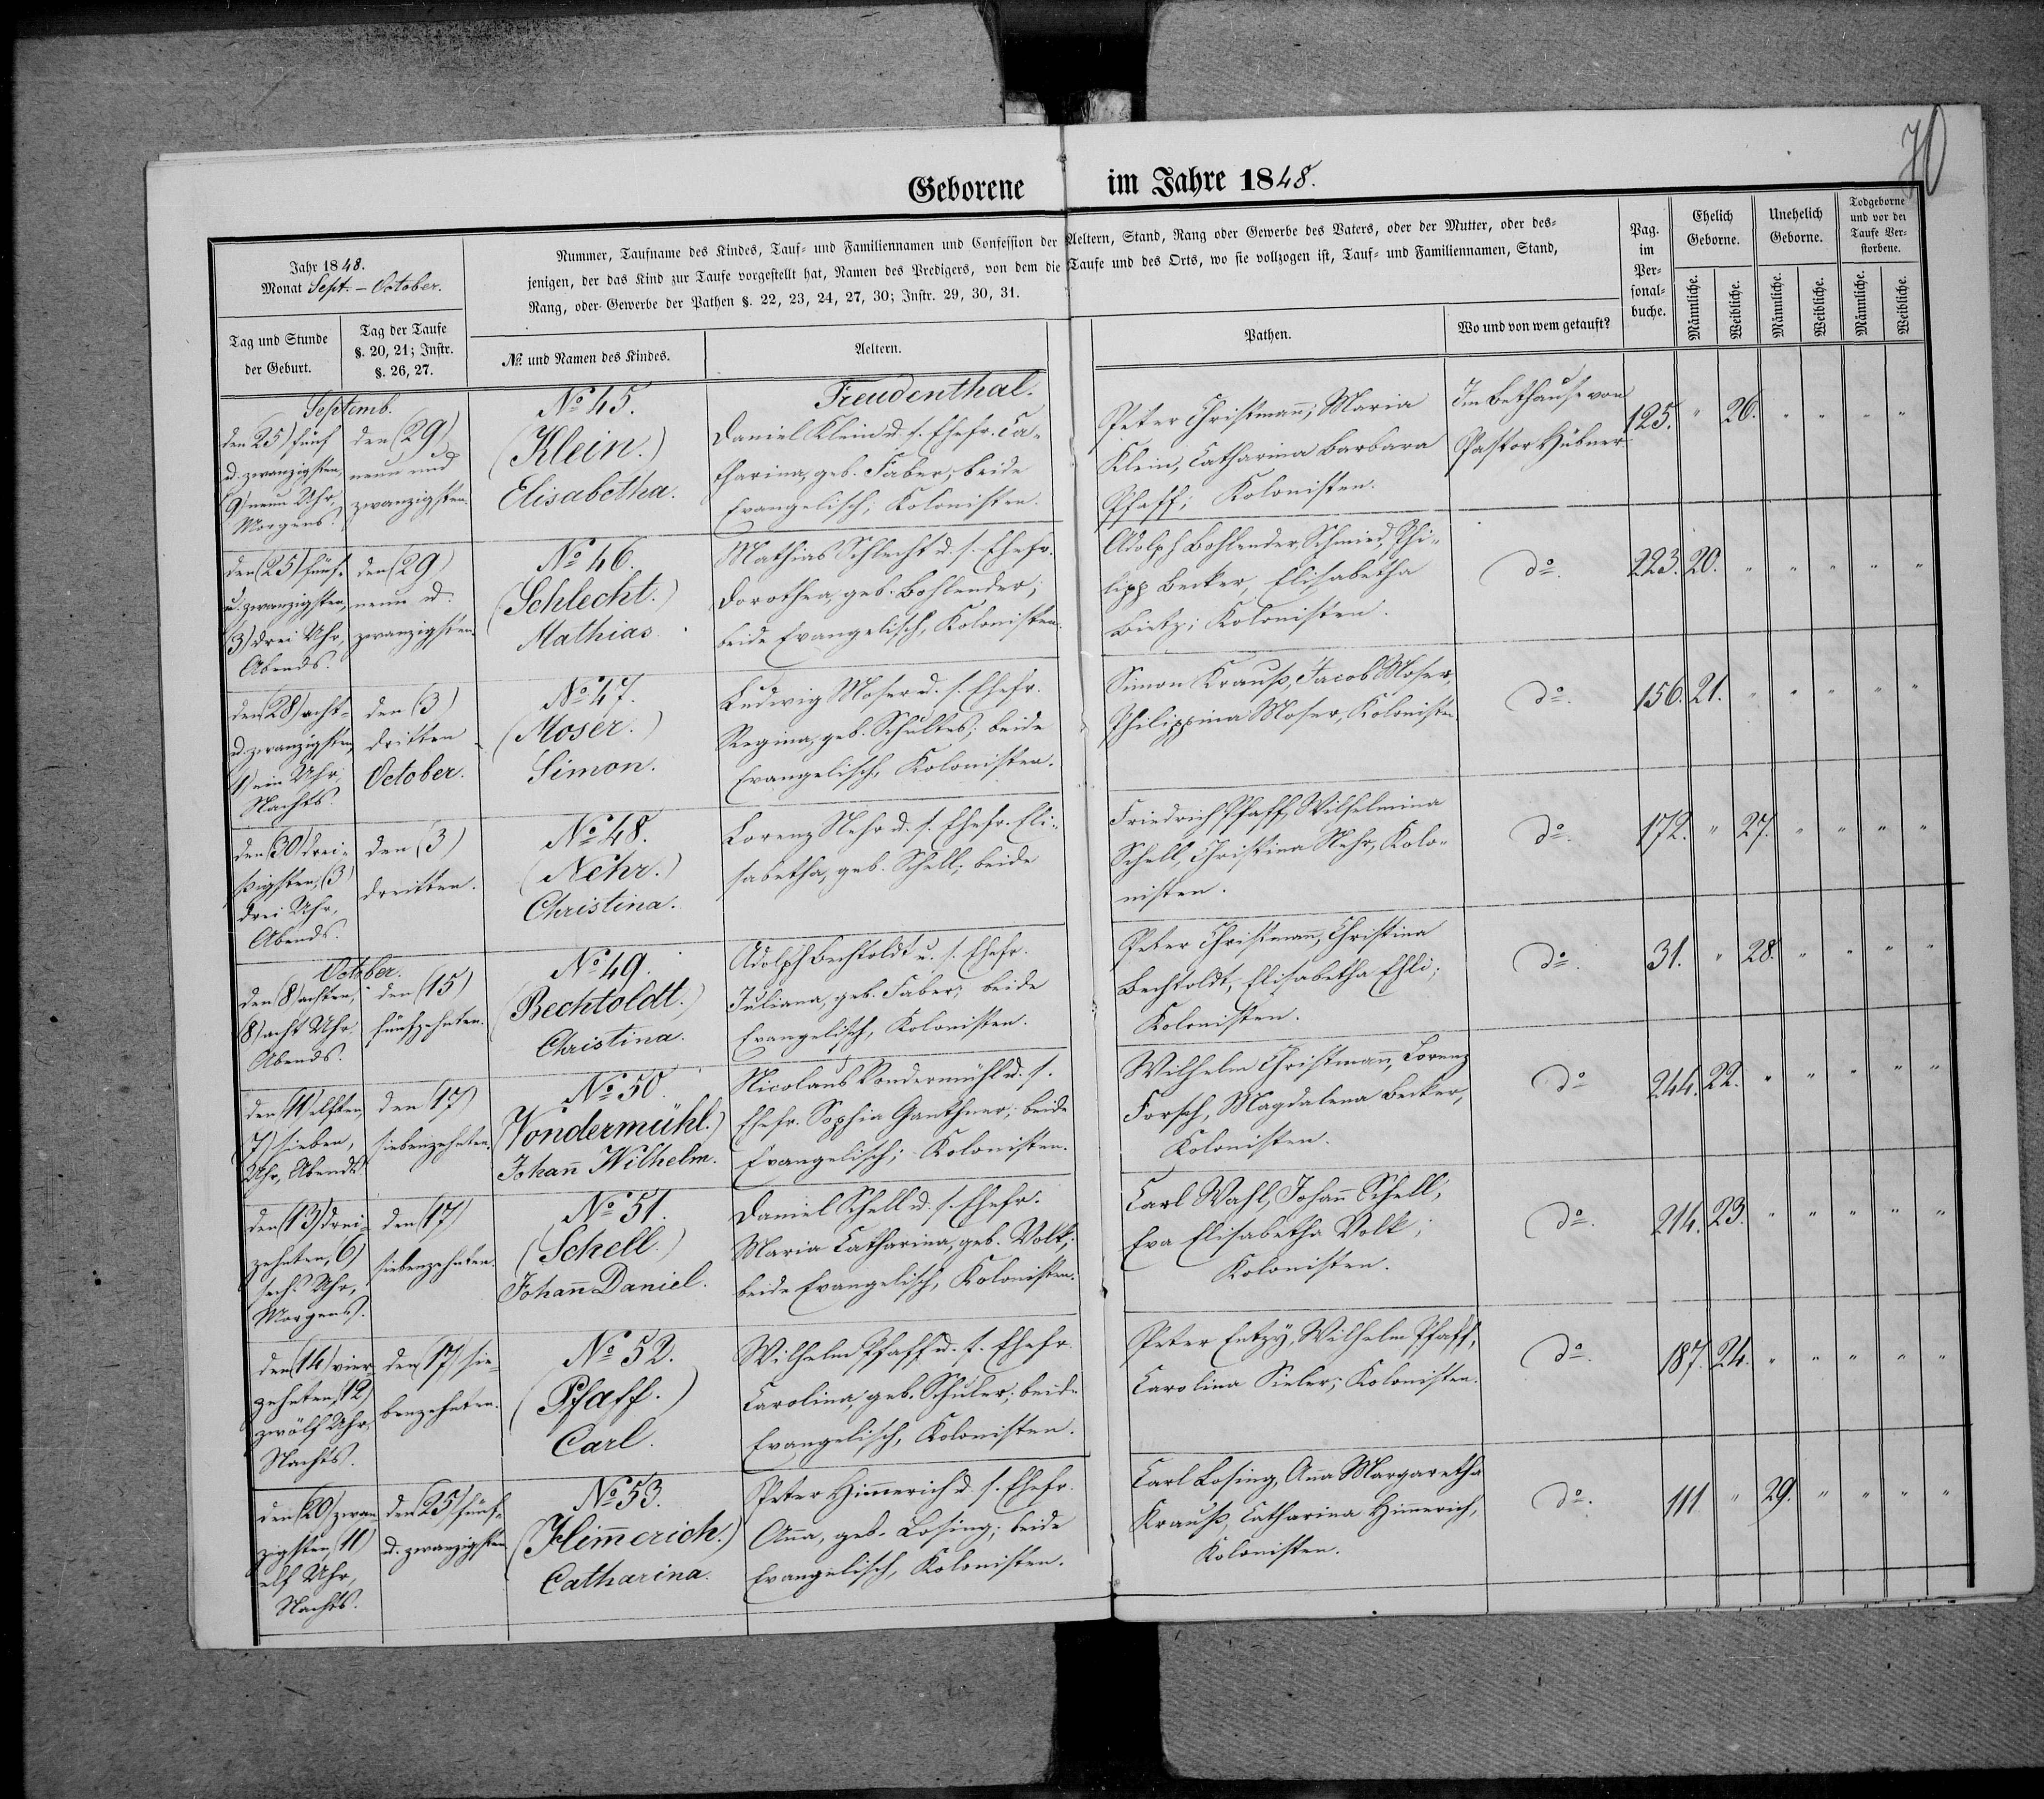 70
Geborene im Jahre 1848.
Jahr 1848.
Monat Sept. - October.
Nummer, Taufname des Kindes, Tauf- und Familiennamen und Confession der Aeltern, Stand, Rang oder Gewerbe des Vaters, oder der Mutter, oder des-
jenigen, der das Kind zur Taufe vorgestellt hat, Namen des Predigers, von dem die Taufe und des Orts, wo sie vollzogen ist, Tauf- und Familiennamen, Stand,
Rang, oder Gewerbe der Pathen §. 22, 23, 24, 27, 30; Instr. 29, 30, 31.
Pag.
im
Per-
sonal-
buche.
Ehelich
Geborne.
Unehelich
Geborne.
Todgeborne
und vor der
Taufe Ver-
storbene.
Tag und Stunde
der Geburt.
Tag der Taufe
§. 20, 21; Instr.
§. 26, 27.
№ und Namen des Kindes.
Aeltern.
Pathen.
Wo und von wem getauft?
Männliche.
Weibliche.
Männliche.
Weibliche.
Männliche.
Weibliche.
Septemb.
den (25) fünf
u. zwanzigsten,
(9) neun Uhr,
Morgens.
den (29)
neun und
zwanzigsten.
№ 45.
(Klein.)
Elisabetha.
Freudenthal.
Daniel Klein u. s. Ehefr. Ca-
tharina, geb. Faber; beide
Evangelisch; Kolonisten.
Peter Christmann; Maria
Klein, Catharina Barbara
Pfaff; Kolonisten.
Im Bethause von
Pastor Hübner.
125. " 26. " " " "
den (25) fünf-
u. zwanzigsten,
(3) drei Uhr,
Abends.
den (29)
neun u.
zwanzigsten.
№ 46.
(Schlecht.)
Mathias.
Mathias Schlecht u. s. Ehefr.
Dorothea, geb. Bohlender;
beide Evangelisch, Kolonisten.
Adolph Bohlender, Schmied, Phi-
lipp Becker, Elisabetha
Bietz; Kolonisten.
do.
223. 20. " " " " "
den (28) acht-
u. zwanzigsten,
(1) ein Uhr,
Nachts.
den (3)
dritten
October.
№ 47.
(Moser.)
Simon.
Ludwig Moser u. s. Ehefr.
Regina, geb. Schultes; beide
Evangelisch, Kolonisten.
Simon Krauß, Jacob Moser,
Philippina Moser, Kolonisten
do.
156. 21. " " " " "
den (30) drei-
ßigsten, (3)
drei Uhr,
Abends.
den (3)
dritten.
№ 48.
(Nehr.)
Christina.
Lorenz Nehr u. s. Ehefr. Eli-
sabetha, geb. Schell; beide
Friedrich Pfaff, Wilhelmina
Schell, Christina Nehr, Kolo-
nisten.
do.
172. " 27. " " " "
October.
den (8) achten,
(8) acht Uhr
Abends.
den (15)
fünfzehnten.
№ 49.
(Bechtoldt.)
Christina.
Adolph Bechtoldt u. s. Ehefr.
Juliana, geb. Faber; beide
Evangelisch, Kolonisten.
Peter Christmann, Christina
Bechtoldt, Elisabetha Ehli;
Kolonisten.
do.
31. " 28. " " " "
den (11) elften,
(7) sieben,
Uhr, Abends.
den (17)
siebenzehnten.
№ 50.
(Vondermühl.)
Johann Wilhelm.
Nicolaus Vondermühl u. s.
Ehefr. Sophia Ganthner; beide
Evangelisch; Kolonisten.
Wilhelm Christmann, Lorenz
Forsch, Magdalena Becker,
Kolonisten.
do
244. 22. " " " " "
den (13) drei-
zehnten, (6)
sechs Uhr,
Morgens.
den (17)
siebenzehnten.
№ 51.
(Schell.)
Johann Daniel.
Daniel Schell u. s. Ehefr.
Maria Catharina, geb. Volk;
beide Evangelisch, Kolonisten.
Carl Wahl, Johann Schell,
Eva Elisabetha Volk;
Kolonisten.
do.
214. 23. " " " " "
den (14) vier-
zehnten, (12)
zwölf Uhr,
Nachts.
den (17) sie-
benzehnten.
№ 52.
(Pfaff.)
Carl.
Wilhelm Pfaff u. s. Ehefr.
Carolina, geb. Schüler; beide
Evangelisch, Kolonisten.
Peter Entzy, Wilhelm Pfaff,
Carolina Sieler; Kolonisten.
do.
187. 24. " " " " "
den (20) zwan-
zigsten, (11)
elf Uhr,
Nachts.
den (25) fünf-
u. zwanzigsten
№ 53.
(Him̄erich.)
Catharina.
Peter Him̄erich u. s. Ehefr.
Anna, geb. Losing; beide
Evangelisch, Kolonisten.
Carl Losing, Anna Margaretha
Krauß, Catharina Him̄erich,
Kolonisten.
do.
111 " 29. " " " "